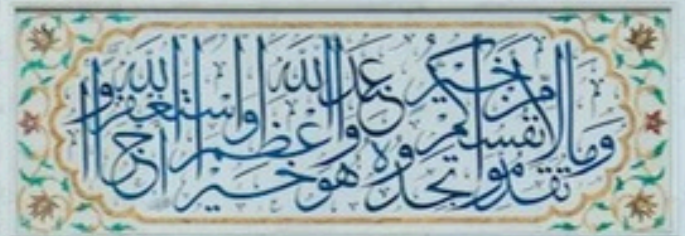 وما تقدموا لأنفسكم من خير تجدوه عند الله هو خيرا وأعظم أجرا واستغفروا الله